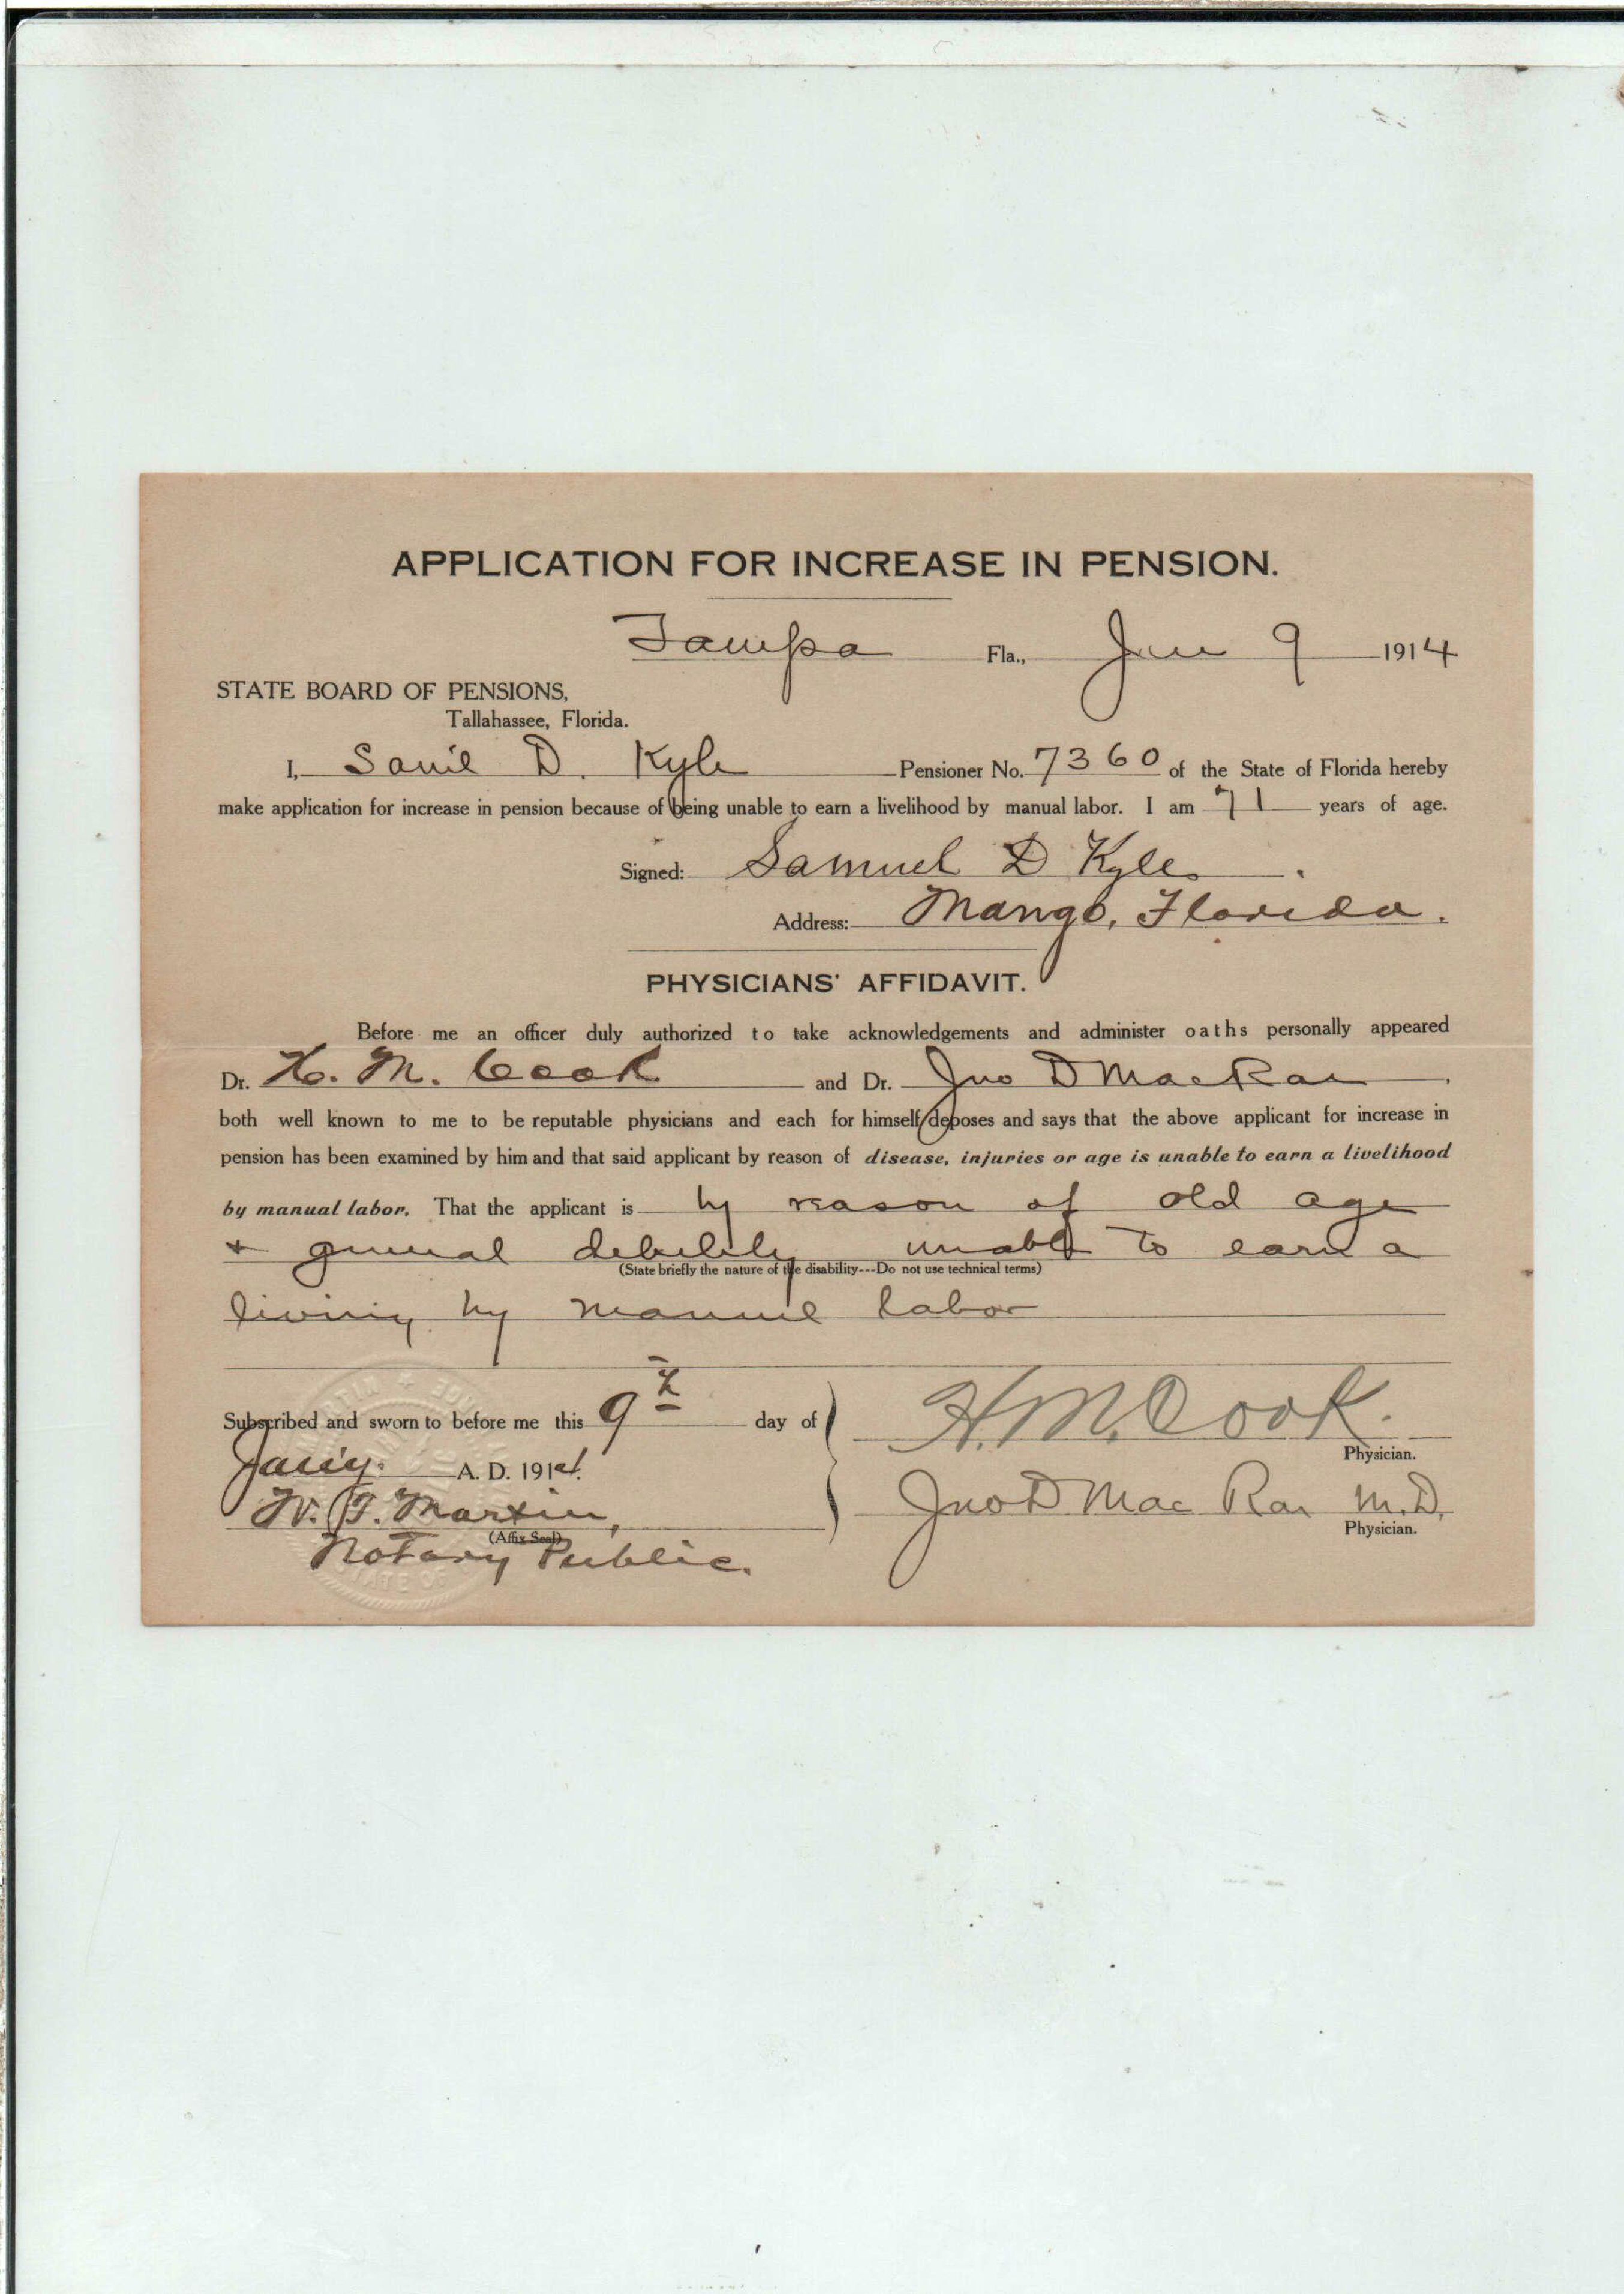 APPLICATION FOR INCREASE IN PENSION.
Tampa Fla., Jan 9 1914
STATE BOARD OF PENSIONS,
Tallahassee, Florida.
I, Saml D. Kyle Pensioner No. 7360 of the State of Florida hereby
make application for increase in pension because of being unable to earn a livelihood by manual labor. I am 71 years of age.
Signed: Samuel D Kyle
Address: Mango, Florida.
PHYSICIANS' AFFIDAVIT.
Before me an officer duly authorized to take acknowledgements and administer oaths personally appeared
Dr. H. M. Cook and Dr. Jno D MacRae
both well known to me to be reputable physicians and each for himself deposes and says that the above applicant for increase in
pension has been examined by him and that said applicant by reason of disease, injuries or age is unable to earn a livelihood
by manual labor. That the applicant is by reason of old age
+ general debility unable to earn a
(State briefly the nature of the disability---Do not use technical terms)
living by manual labor
Subscribed and sworn to before me this 9th day of
H. M. Cook.
Physician.
Jany. A. D. 1914.
W. F. Martin,
Jno D Mac Rae M.D.
Physician.
(Affix Seal)
Notary Public.